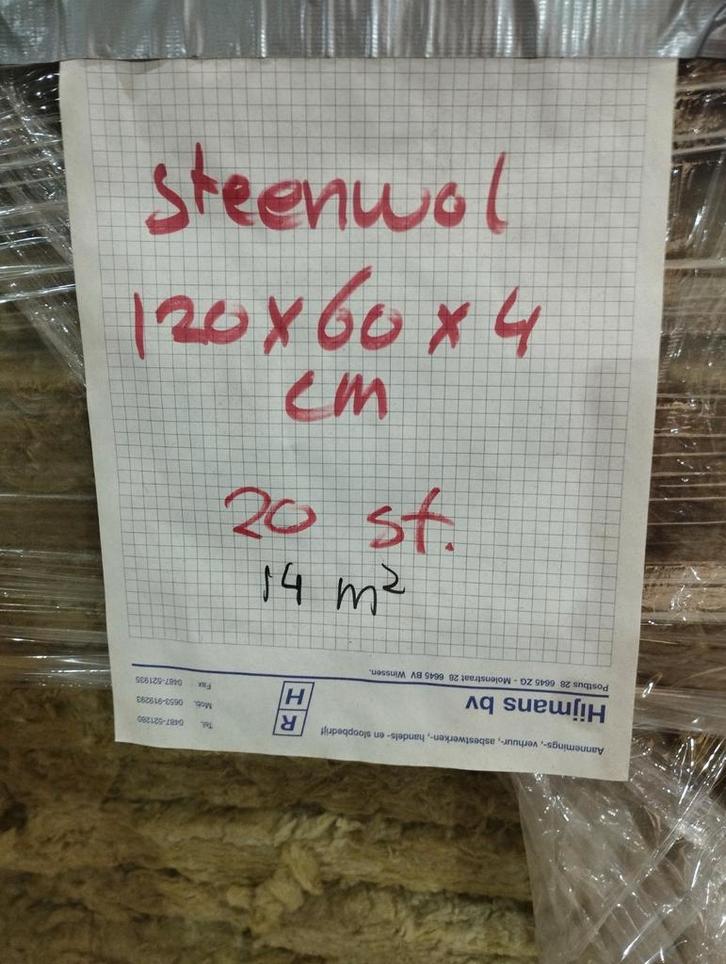 steenwol
120 x 60 x 4
cm
20 st.
14 m²
Aannemings-, verhuur-, asbestwerken-, handels- en sloopbedrijf
Hijmans bv
Postbus 28 6645 ZG - Molenstraat 26 6645 BV Winssen.
R
H
Tel. 0487-521280
Mob. 0653-919293
Fax 0487-521935